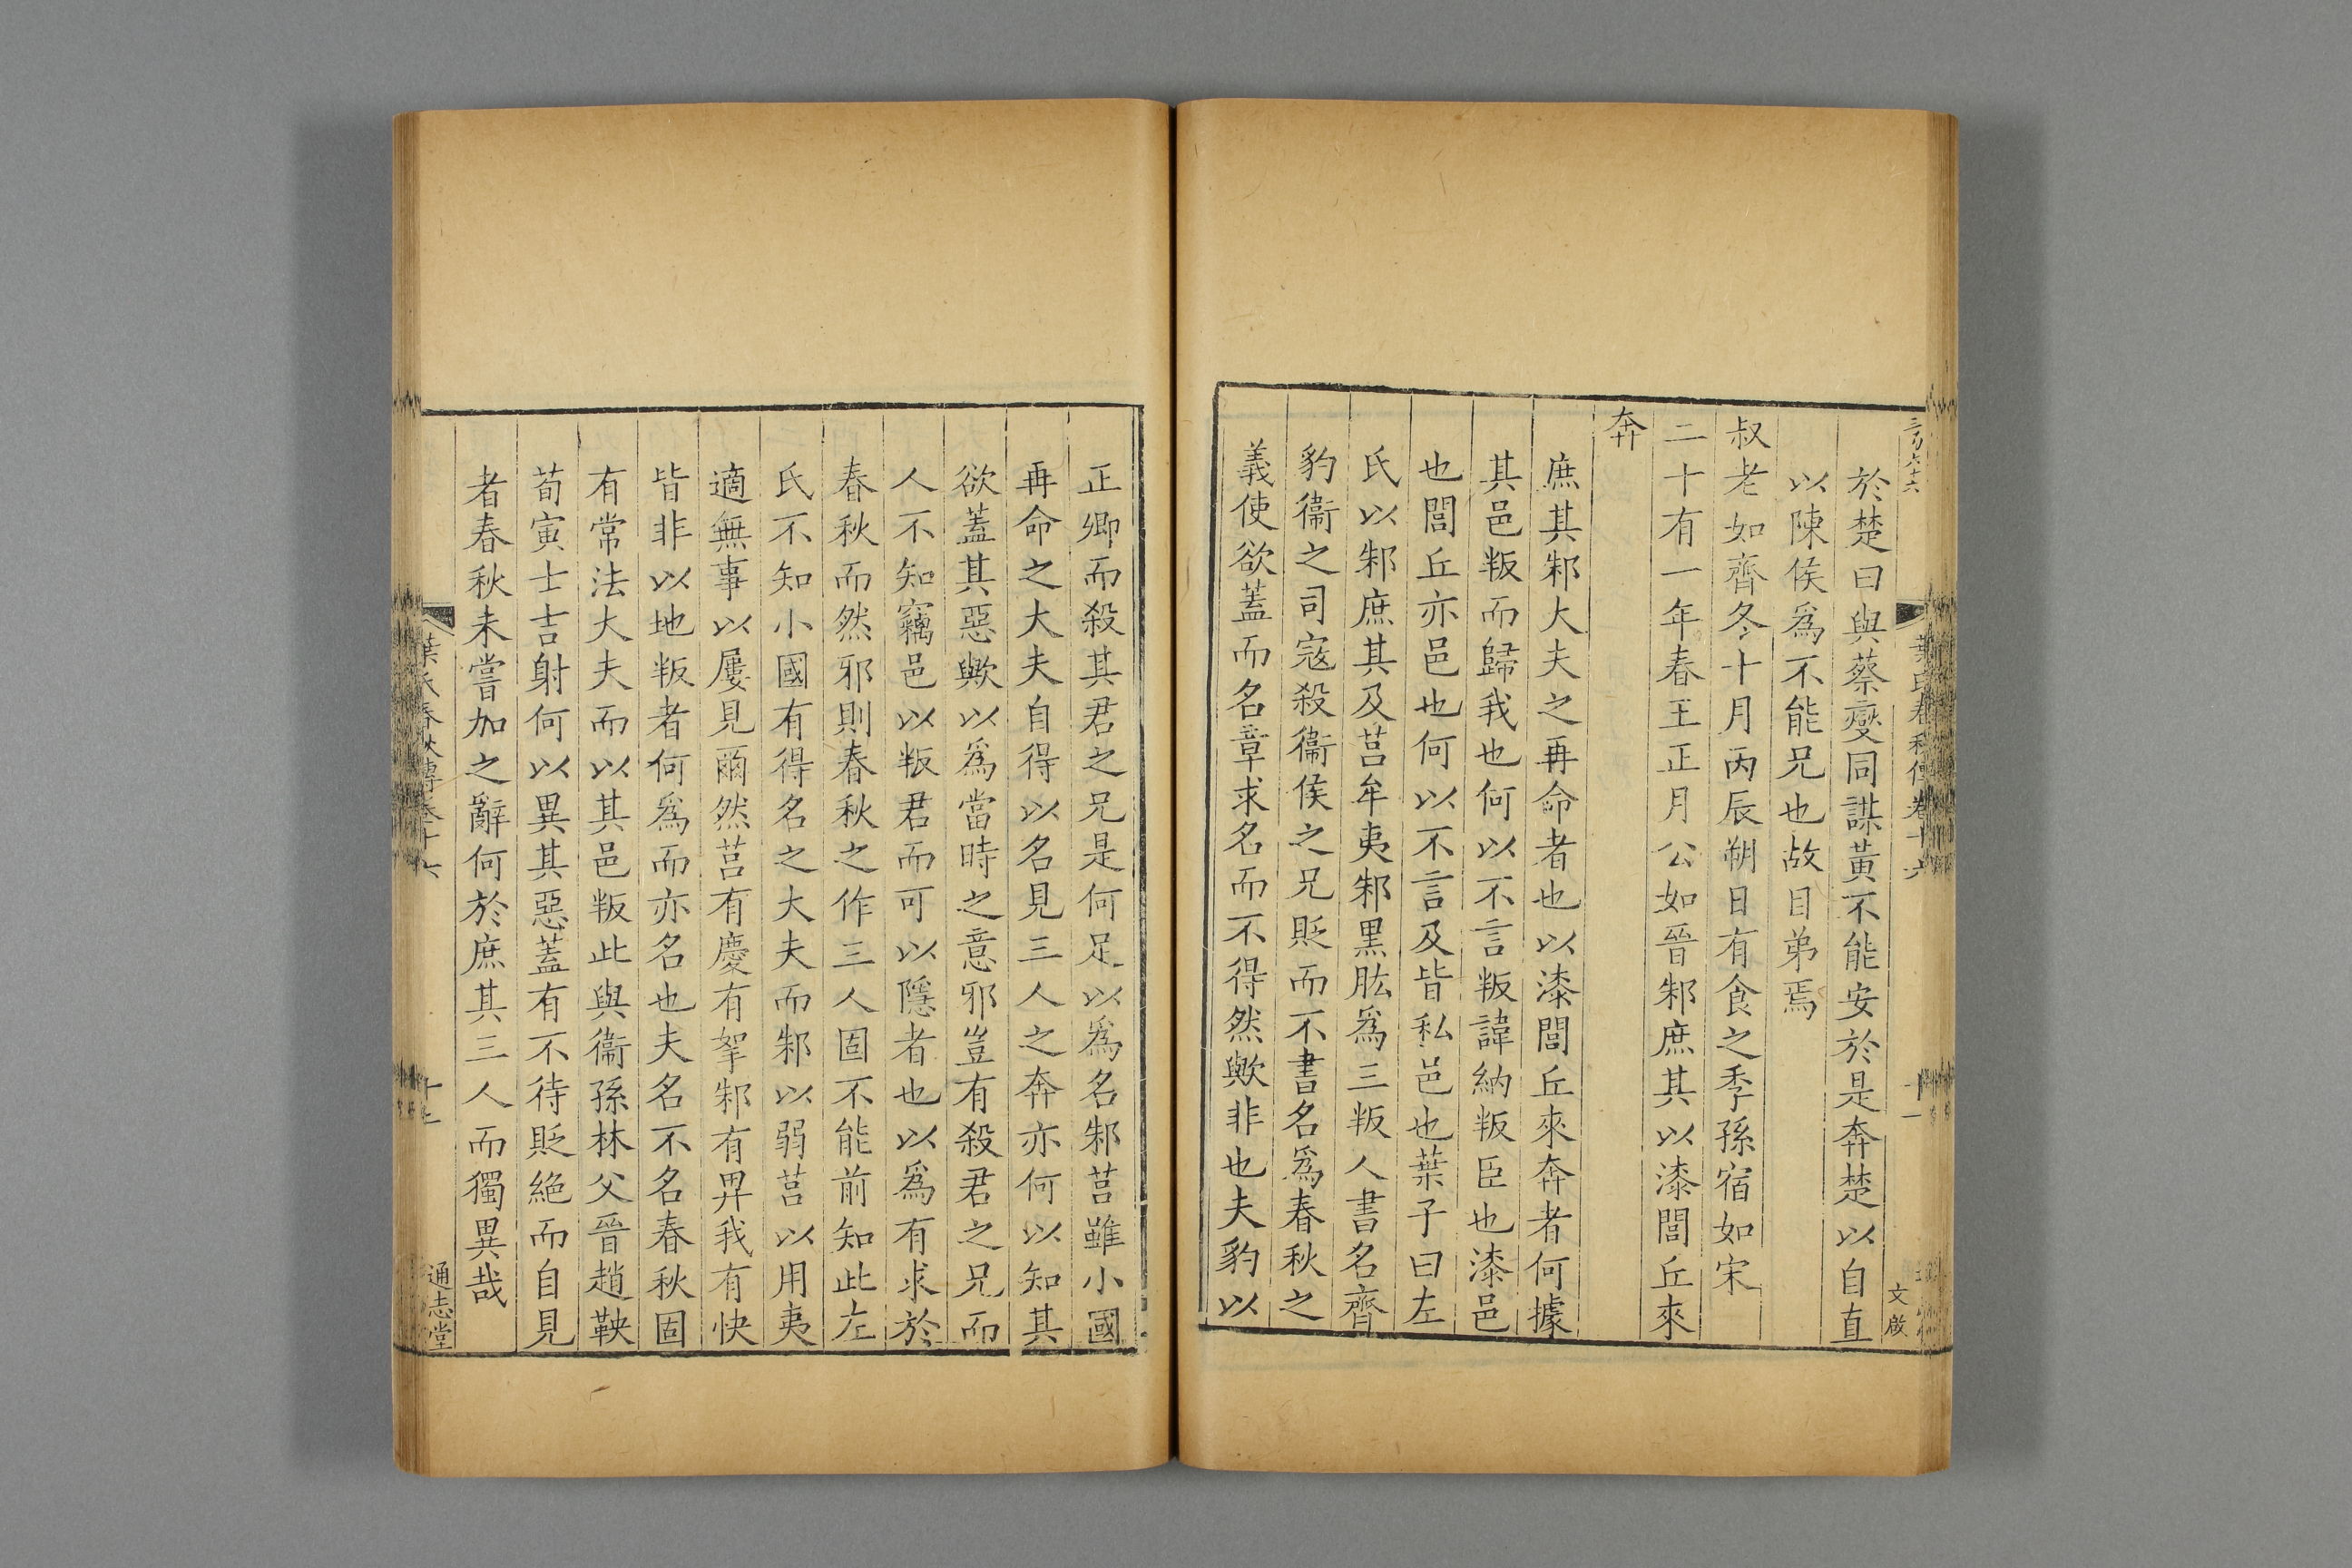 於楚曰與蔡燮同謀黃不能安於是奔楚以自直
以陳侯爲不能兄也故目弟焉
叔老如齊冬十月丙辰朔日有食之季孫宿如宋
二十有一年春王正月公如晉邾庶其以漆閭丘來
奔
庶其邾大夫之再命者也以漆閭丘來奔者何據
其邑叛而歸我也何以不言叛諱納叛臣也漆邑
也閭丘亦邑也何以不言及皆私邑也葉子曰左
氏以邾庶其及莒牟夷邾黑肱爲三叛人書名齊
豹衞之司寇殺衞侯之兄貶而不書名爲春秋之
義使欲蓋而名章求名而不得然歟非也夫豹以
文啟
正卿而殺其君之兄是何足以爲名邾莒雖小國
再命之大夫自得以名見三人之奔亦何以知其
欲蓋其惡歟以爲當時之意邪豈有殺君之兄而
人不知竊邑以叛君而可以隱者也以爲有求於
春秋而然邪則春秋之作三人固不能前知此左
氏不知小國有得名之大夫而邾以弱莒以用夷
適無事以屢見爾然莒有慶有挐邾有畀我有快
皆非以地叛者何爲而亦名也夫名不名春秋固
有常法大夫而以其邑叛此與衞孫林父晉趙鞅
荀寅士吉射何以異其惡蓋有不待貶絕而自見
者春秋未嘗加之辭何於庶其三人而獨異哉
葉氏春秋傳卷十六
通志堂